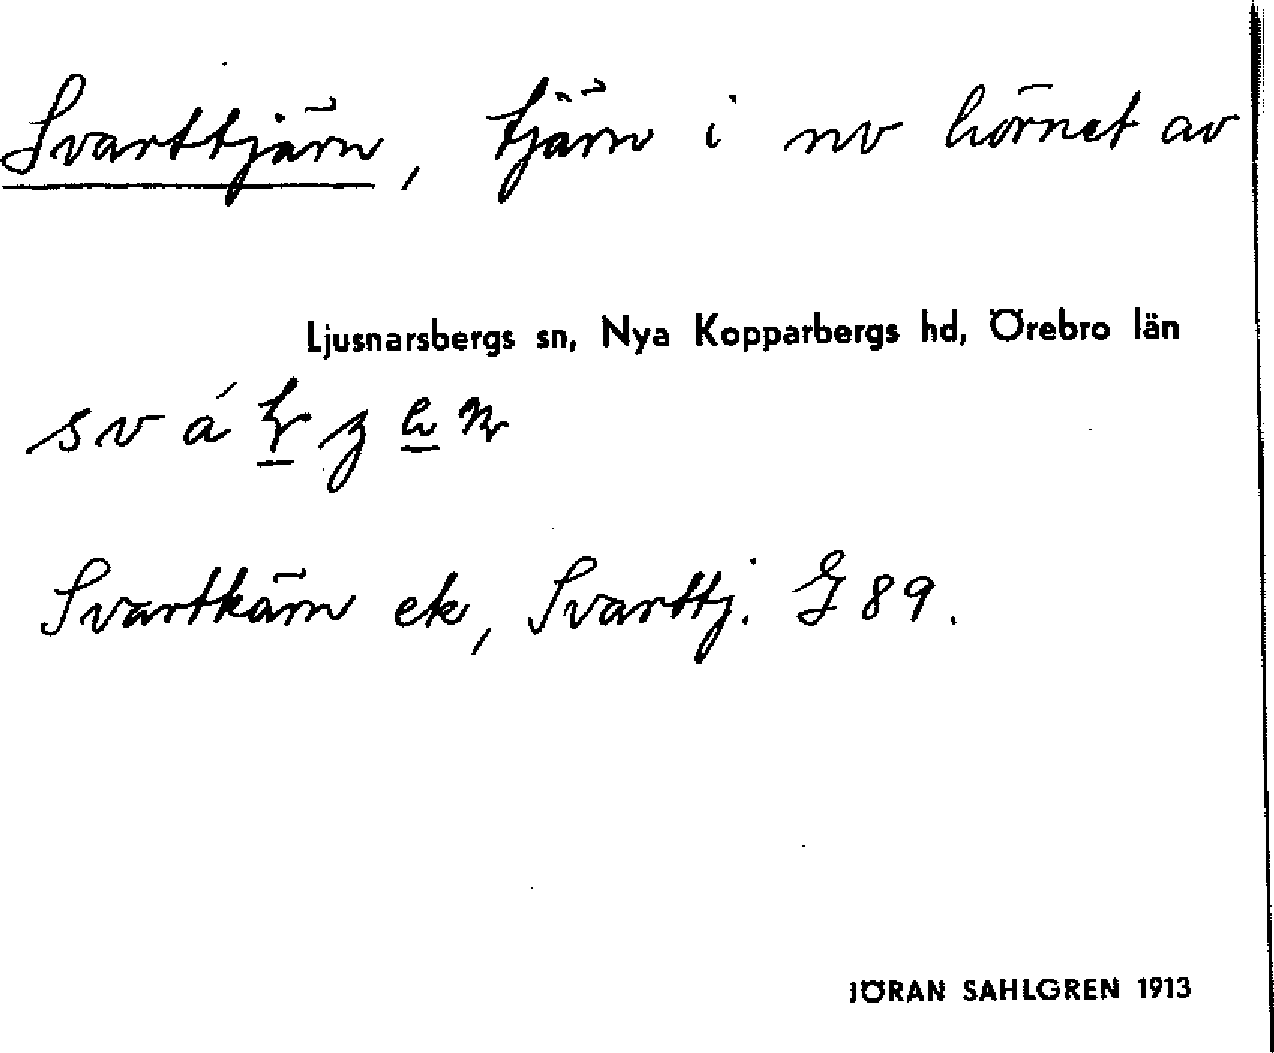 Svarttjärn, tjärn i nv hörnet av
Ljusnarsbergs sn, Nya Kopparbergs hd, Örebro län
Svartkärn ek, Svarttj. G 89.
JÖRAN SAHLGREN 1913